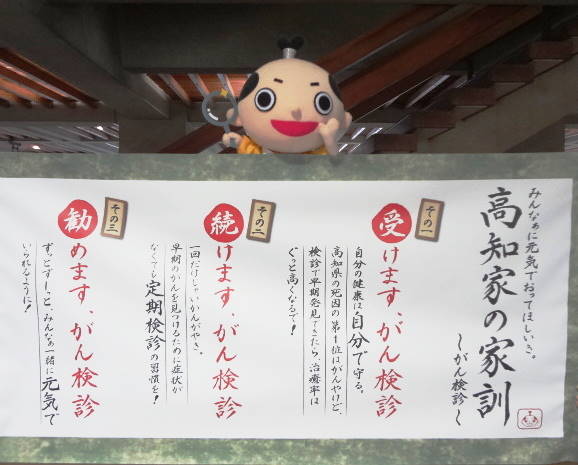 みんなぁに元気でおってほしいき。
高知家の家訓
～がん検診～
その一
受けます、がん検診
自分の健康は自分で守る。
高知県の死因の第1位はがんやけど、
検診で早期発見できたら、治療率は
ぐっと高くなるで!
その二
続けます、がん検診
一回だけじゃいかんがやき。
早期のがんを見つけるために症状が
なくても定期検診の習慣を!
その三
勧めます、がん検診
ずっとずーっと、みんなぁ一緒に元気で
いられるように!